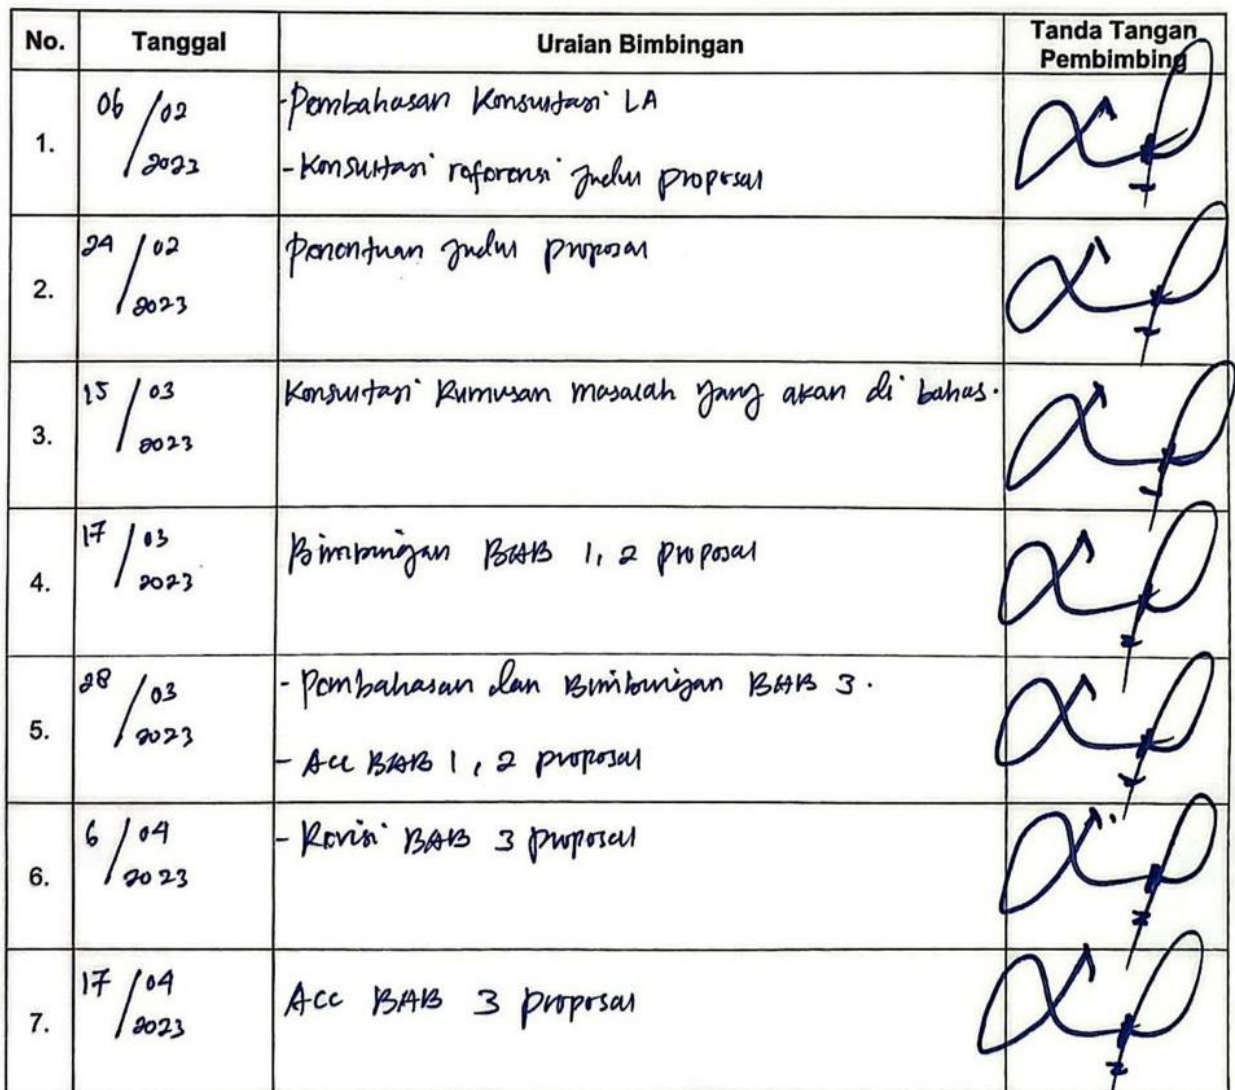 No. Tanggal Uraian Bimbingan Tanda Tangan Pembimbing
1. 06/02 2023 -Pembahasan Konsultasi LA
- Konsultasi referensi judul proposal
2. 24/02 2023 Penentuan judul proposal
3. 15/03 2023 Konsultasi Rumusan masalah yang akan di bahas.
4. 17/03 2023 Bimbingan BAB 1, 2 proposal
5. 28/03 2023 - Pembahasan dan Bimbingan BAB 3.
- Acc BAB 1, 2 proposal
6. 6/04 2023 - Revisi BAB 3 proposal
7. 17/04 2023 Acc BAB 3 proposal